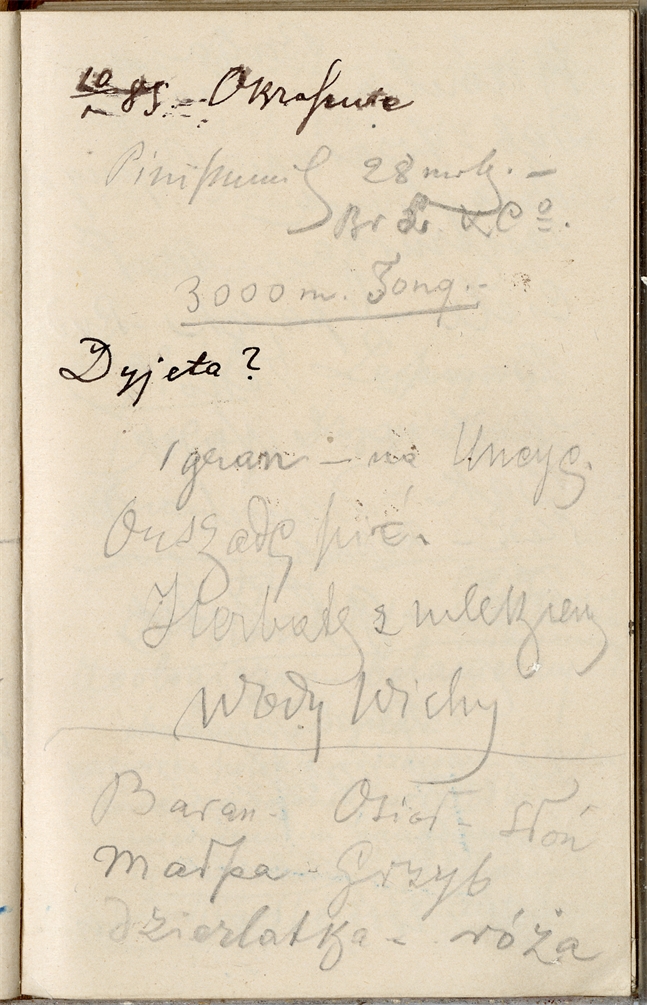 10 85 – Okrosenie
28 mrk. –
Br & Co.
3000 m. Fong.–
Dyjeta?
1 gran – na Uncyę.
Orszadę pić.
Herbatę z mlekiem
Wody Wichy
Baran – Osioł – Słoń
Małpa – Grzyb
Dzierlatka – róża